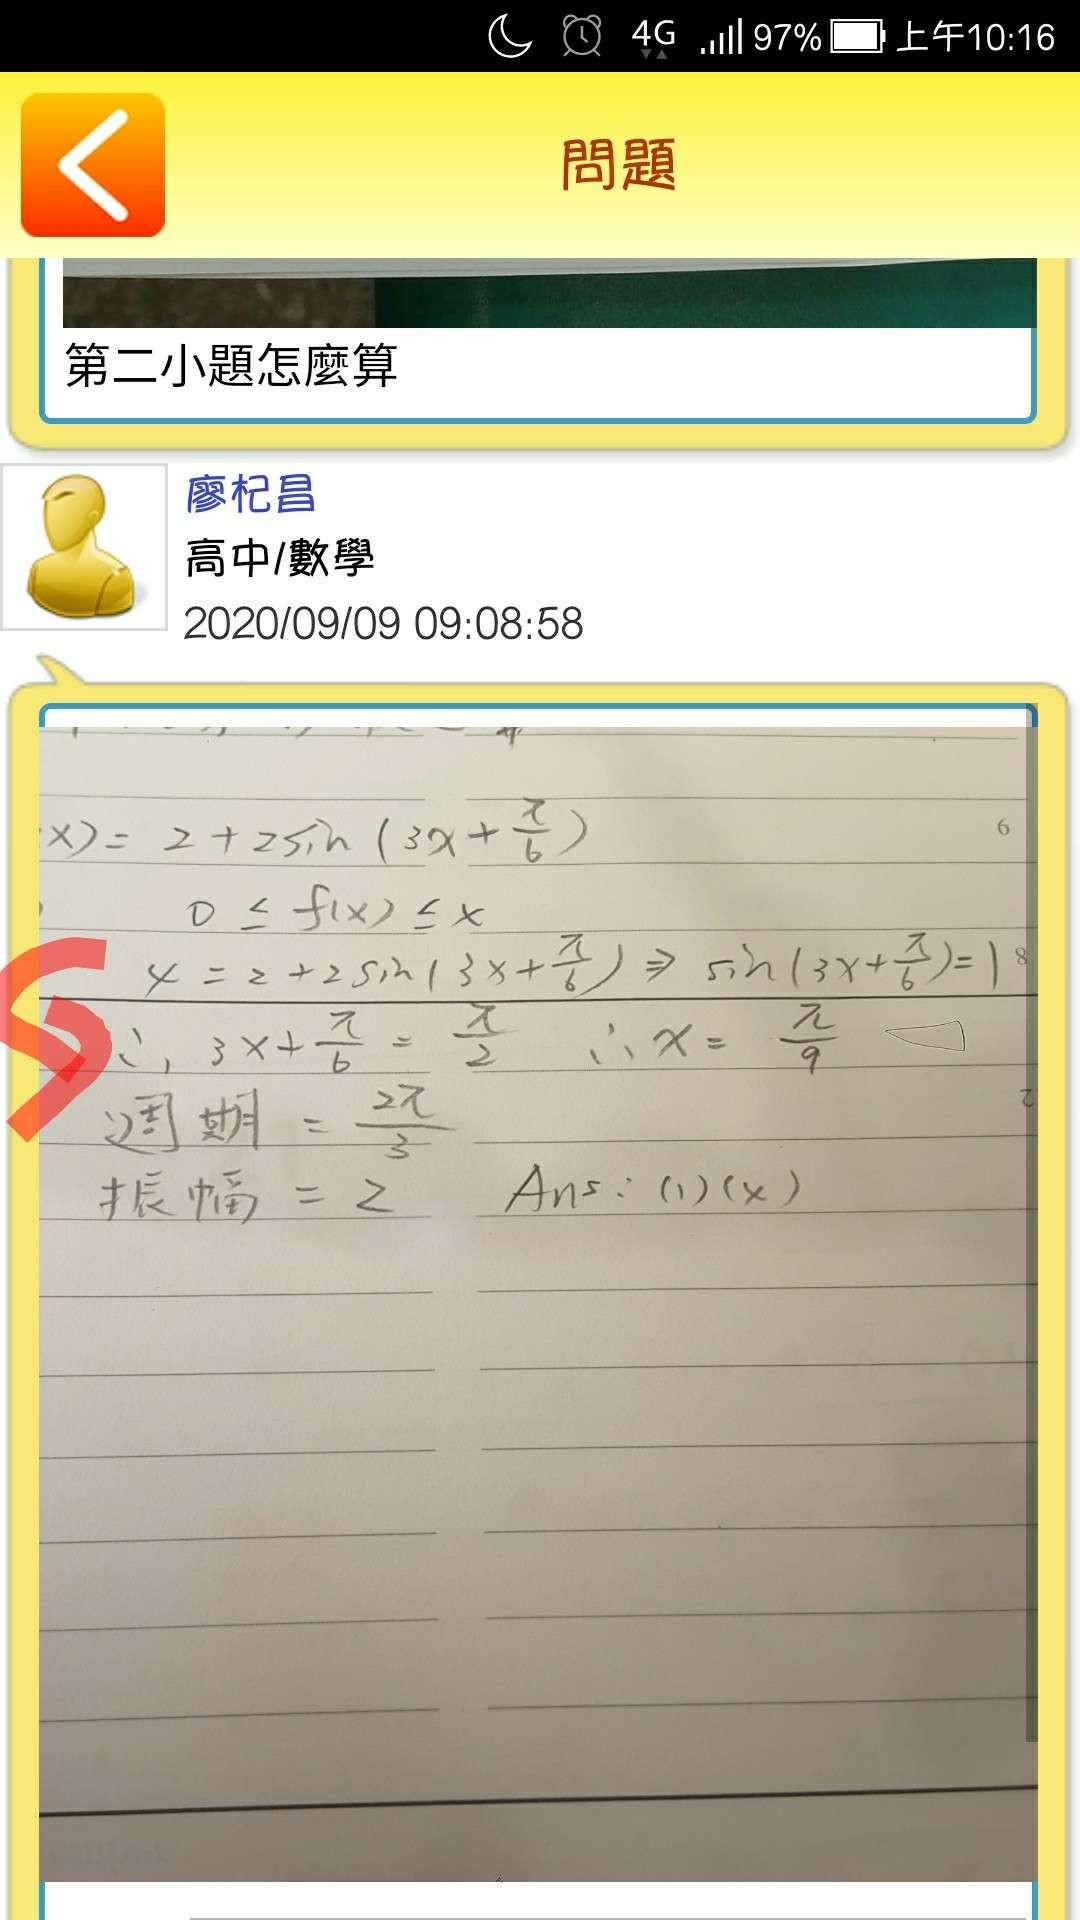 4G 97% 上午10:16
問題
第二小題怎麼算
廖杞昌
高中/數學
2020/09/09 09:08:58
x) = 2 + 2sin(3x + π/6)
6
0 ≤ f(x) ≤ x
4 = 2 + 2sin(3x + π/6) ⇒ sin(3x + π/6) = 1
8
∴ 3x + π/6 = π/2 ∴ x = π/9
週期 = 2π/3
振幅 = 2 Ans: (1)(x)